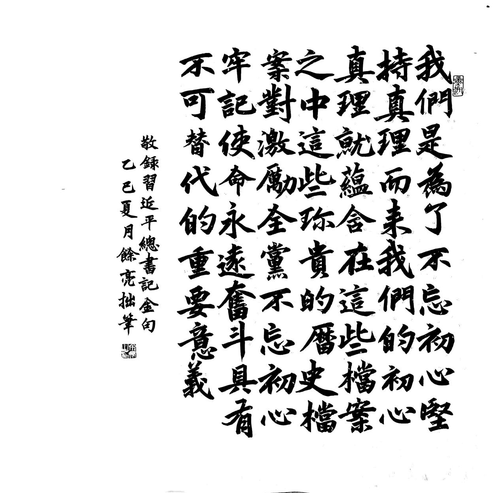 我們是為了不忘初心堅
持真理而來我們的初心
真理就蘊含在這些檔案
之中這些珍貴的曆史檔
案對激勵全黨不忘初心
牢記使命永遠奮斗具有
不可替代的重要意義
敬錄習近平總書記金句
乙巳夏月餘亮拙筆